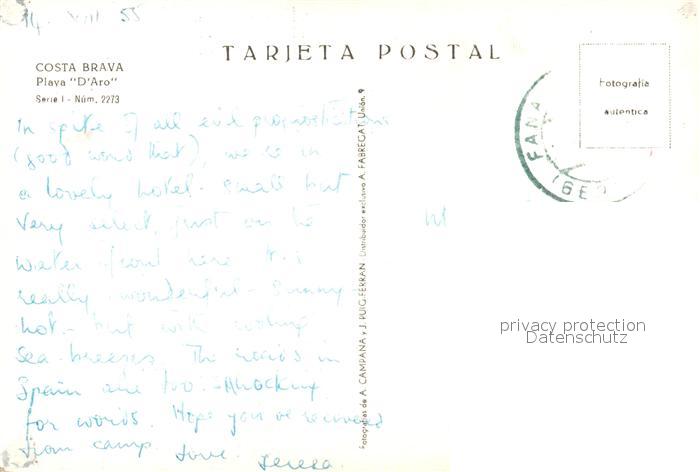 14. VIII 55
TARJETA POSTAL
COSTA BRAVA
Playa "D'Aro"
Serie I - Núm. 2273
In spite of all evil prognostications
(good word that), we are in
a lovely hotel - small but
very select, just on the
water front here. It is
really wonderful - sunny
hot - but with cooling
sea-breezes. The roads in
Spain are too shocking
for words. Hope you've recovered
from camp. Love. Teresa.
Fotografías de A. CAMPANA y J. PUIG-FERRAN Distribuidor exclusivo A. FABREGAT Unión, 9
Fotografía
auténtica
privacy protection
Datenschutz